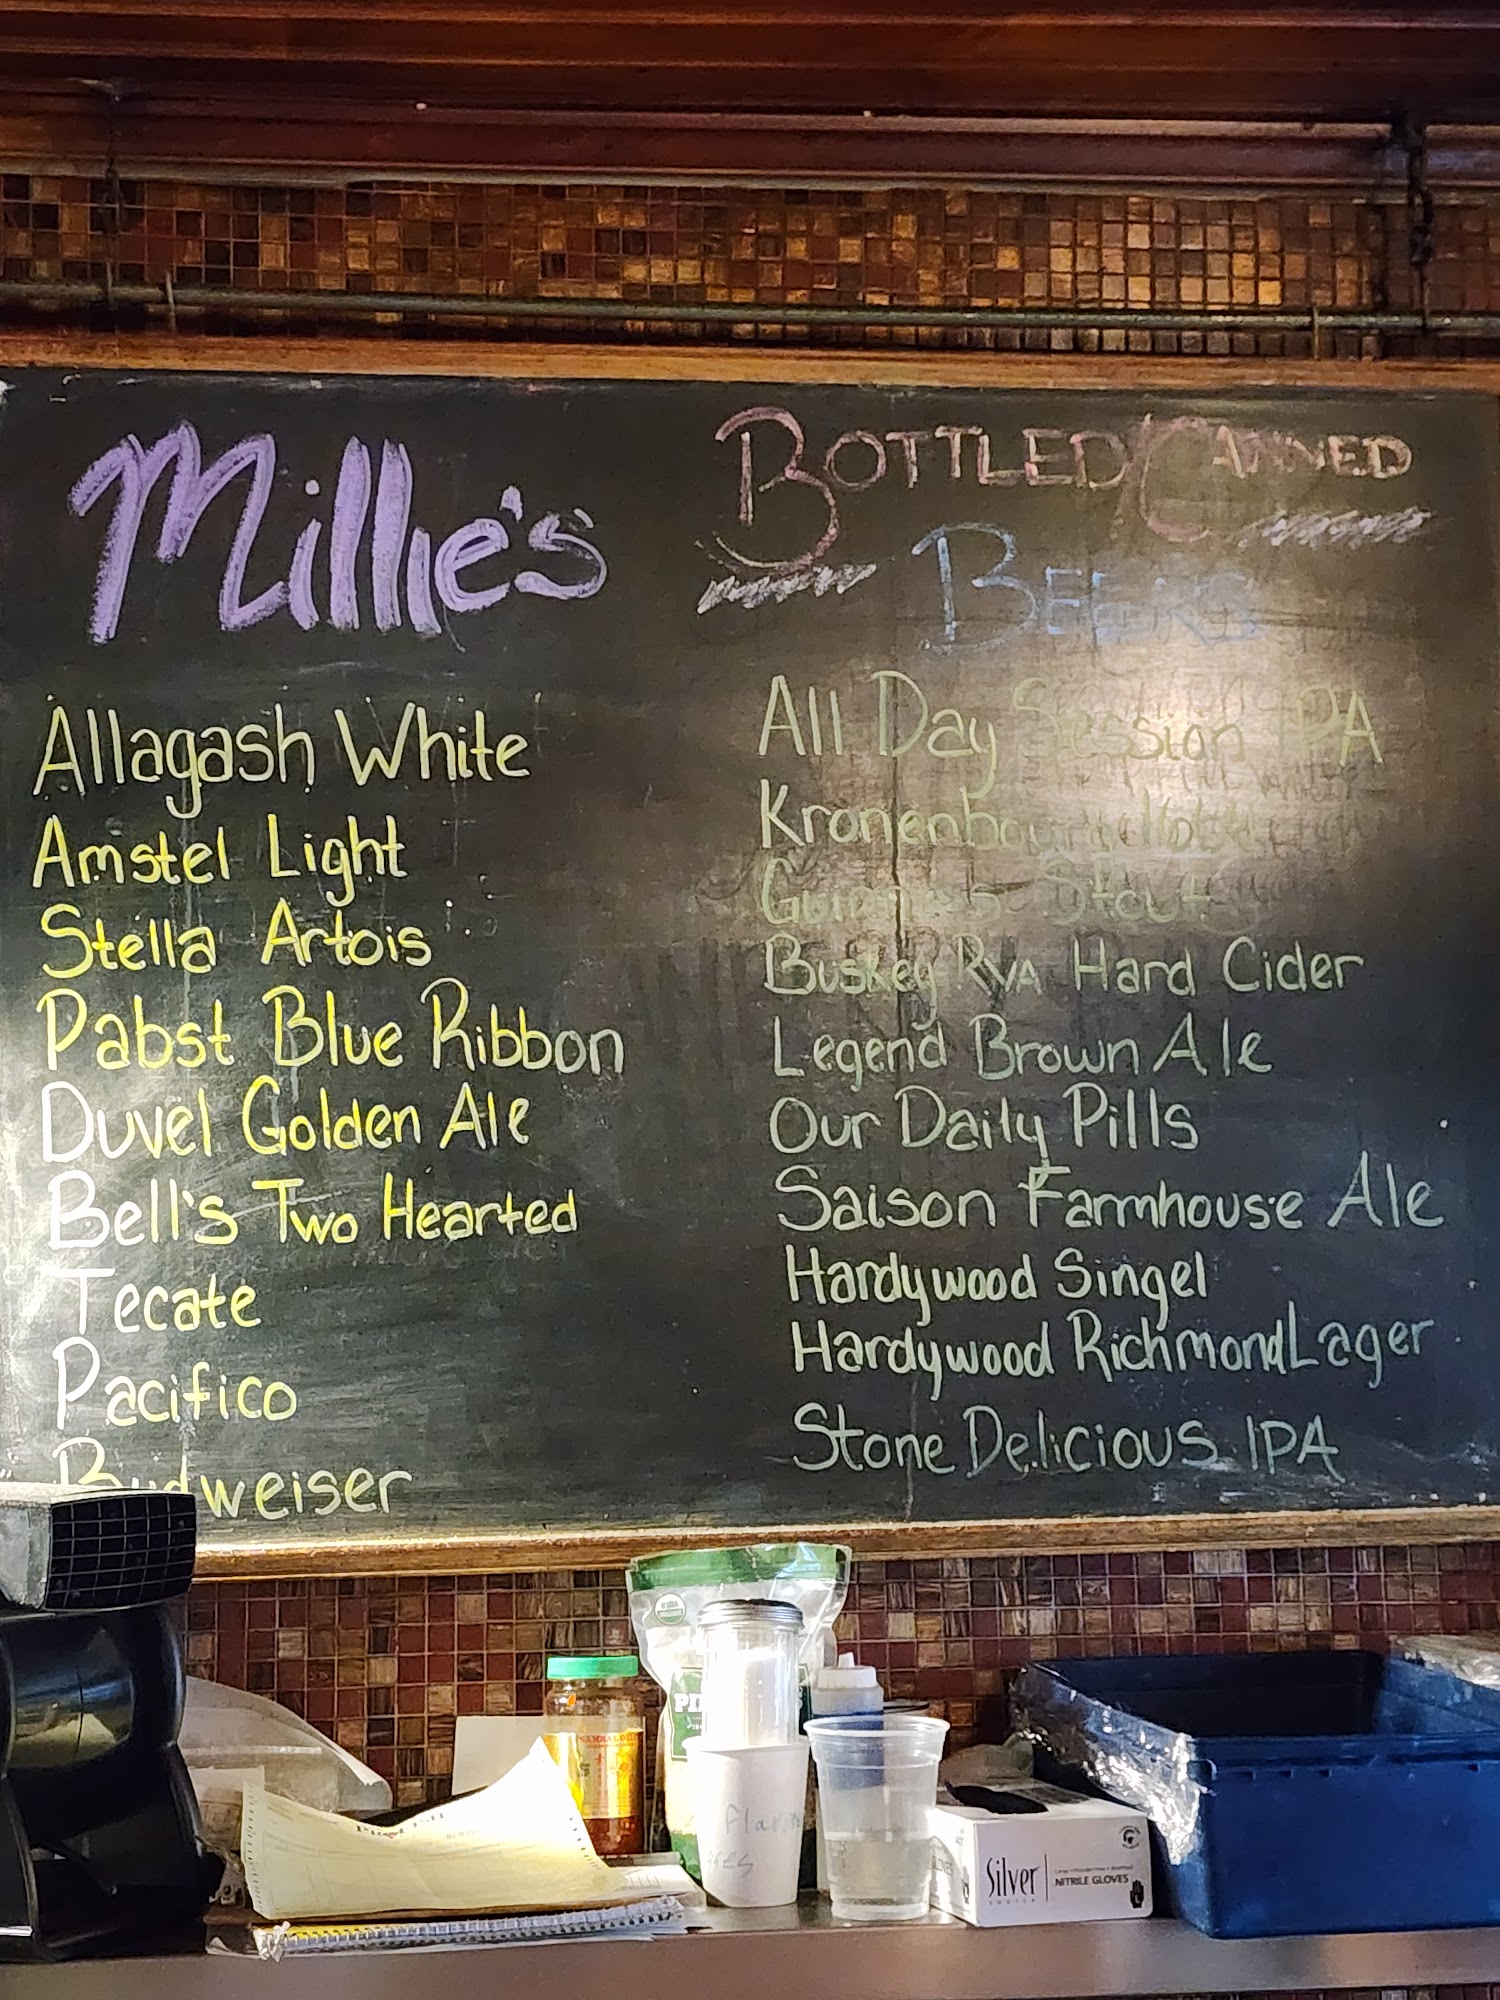 Millie's
BOTTLED/CANNED
BEERS
Allagash White
Amstel Light
Stella Artois
Pabst Blue Ribbon
Duvel Golden Ale
Bell's Two Hearted
Tecate
Pacifico
Budweiser
All Day Session IPA
Kronenbourg
Guinness Stout
Buskey RVA Hard Cider
Legend Brown Ale
Our Daily Pills
Saison Farmhouse Ale
Hardywood Singel
Hardywood Richmond Lager
Stone Delicious IPA
SAMBAL OELEK
Silver
NITRILE GLOVES